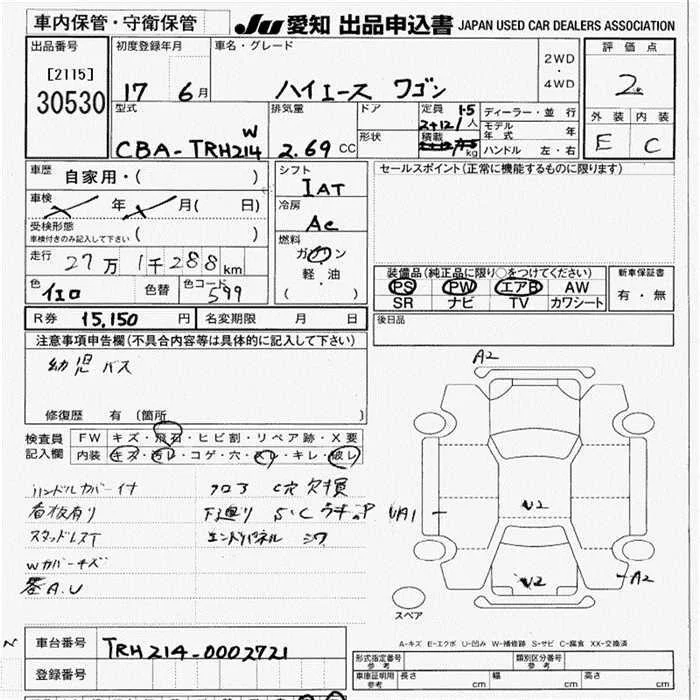 車内保管・守衛保管
JU 愛知 出品申込書 JAPAN USED CAR DEALERS ASSOCIATION
出品番号
[2115]
30530
初度登録年月
17 6月
車名・グレード
ハイエース ワゴン
2WD
・
4WD
評価点
2
外装 内装
E C
型式
W
CBA-TRH214
排気量
2.69 CC
ドア
形状
定員 1.5
2+12/人
積載
kg
ディーラー・並行
モデル
年式 年
ハンドル 左・右
車歴 自家用・( )
車検 年 月( 日)
受検形態
車検付きのみ記入して下さい ( )
走行 27万1千288km
色 イエロ 色替 色コード 599
シフト
IAT
冷房
AC
燃料
ガソリン
・
軽・油
( )
セールスポイント(正常に機能するものに限ります)
装備品(純正品に限り○をつけてください)
PS PW エアB AW
SR ナビ TV カワシート
新車保証書
有・無
R券 15,150 円 名変期限 月 日
後日品
注意事項申告欄(不具合内容等は具体的に記入して下さい)
幼児バス
修復歴 有 (箇所 )
検査員
記入欄
FW キズ・飛石・ヒビ割・リペア跡・X要
内装 キズ・汚レ・コゲ・穴・スレ・キレ・破レ
ハンドルカバー付
フロア C穴 欠損
看板有り
下廻り S・C
スタッドレスT
エンドパネル シワ
Wカバーキズ
A.U
A2
UA1
W2
W2
A2
スペア
A-キズ E-エクボ U-凹み W-補修跡 S-サビ C-腐食 XX-交換済
N
車台番号 TRH214-0002721
登録番号
形式指定番号
参考
類別区分番号
参考
車庫証明用
参考
長さ cm 幅 cm 高さ cm